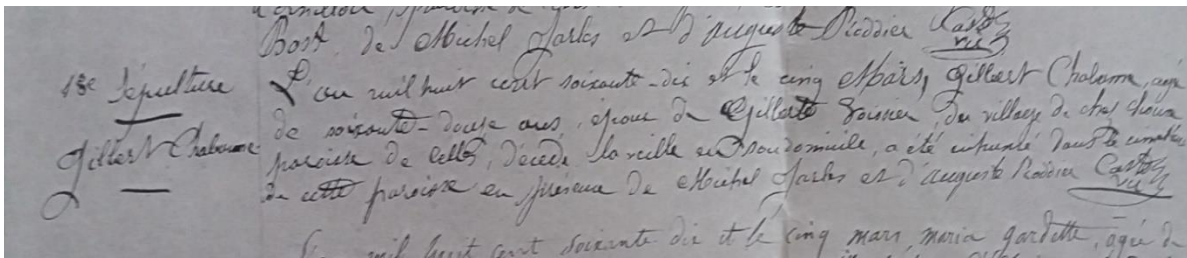 Bost, de Michel Jarles et d'Auguste Rioddier
18e Sépulture
Gilbert Chabanne
L'an mil huit cent soixante-dix et le cinq Mars, Gilbert Chabanne, agé
de soixante-douze ans, époux de Gilberte Voissier, du village de chez
paroisse de Celles, décédé la veille en son domicile, a été inhumé dans le cimetière
de cette paroisse en présence de Michel Jarles et d'auguste Rioddier
L'an mil huit cent soixante dix et le cinq mars, maria gardette, agée de